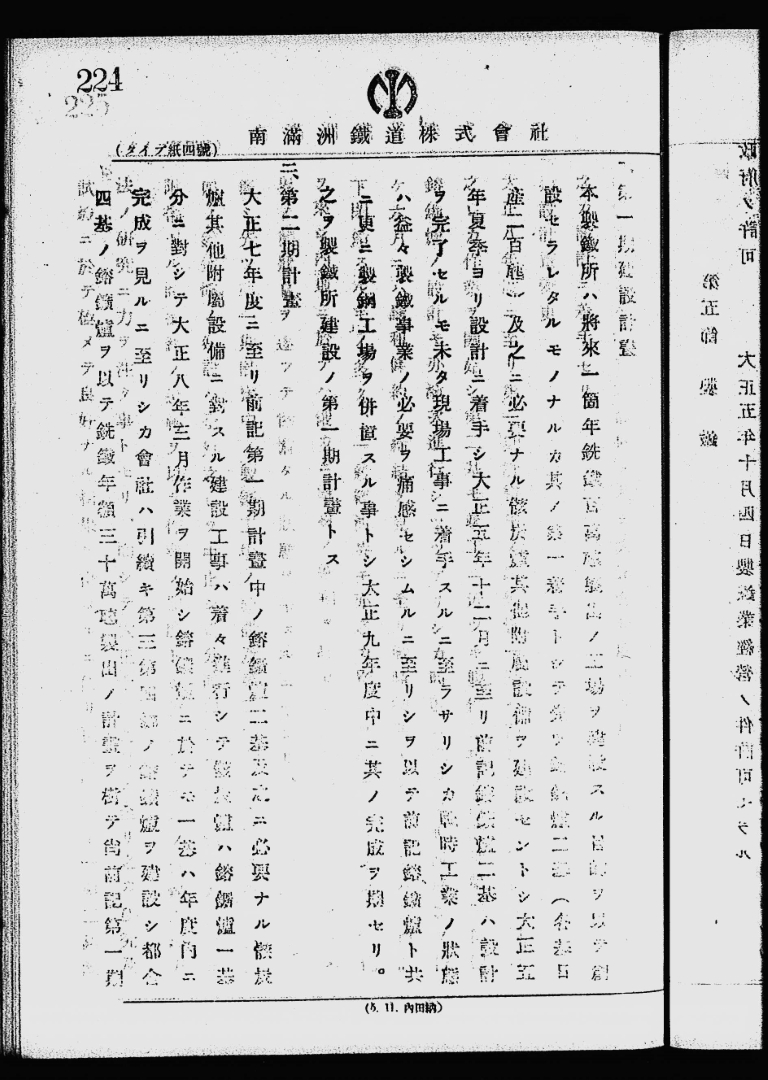 224
225
南滿洲鐵道株式會社
(タイプ紙四號)
一、第一期建設計畫
本製鐵所ハ將來一箇年銑鐵百萬瓲製出ノ工場ヲ建設スル目的ヲ以テ創
設セラレタルモノナルカ其ノ第一着手トシテ先ツ鎔鑛爐二基(各基日
產二百瓲)及之ニ必要ナル骸炭爐其他附屬設備ヲ建設セントシ大正五
年夏季ヨリ設計ニ着手シ大正五年十二月ニ至リ前記鎔鑛爐二基ハ設計
ヲ完了セルモ未タ現場工事ニ着手スルニ至ラサリシカ戰時工業ノ狀態
ハ益々製鐵事業ノ必要ヲ痛感セシムルニ至リシヲ以テ前記鎔鑛爐ト共
ニ更ニ製鋼工場ヲ併置スル事トシ大正九年度中ニ其ノ完成ヲ期セリ。
之ヲ製鐵所建設ノ第一期計畫トス
二、第二期計畫
大正七年度ニ至リ前記第一期計畫中ノ鎔鑛爐二基及之ニ必要ナル骸炭
爐其他附屬設備ニ對スル建設工事ハ着々進行シテ骸炭爐ハ鎔鑛爐一基
分ニ對シテ大正八年三月作業ヲ開始シ鎔鑛爐ニ於テモ一基ハ年度內ニ
完成ヲ見ルニ至リシカ會社ハ引續キ第三第四號ノ鎔鑛爐ヲ建設シ都合
四基ノ鎔鑛爐ヲ以テ銑鐵年額三十萬瓲製出ノ計畫ヲ樹テ尙前記第一期
(5. 11. 內田納)
政府ノ許可
大正五年十月四日製鐵業經營ノ件許可セラル
第五節 製鐵